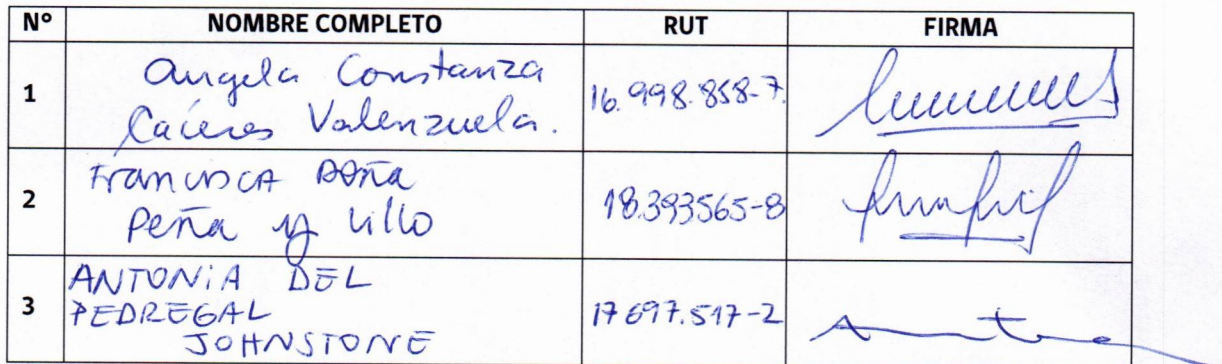 N° NOMBRE COMPLETO RUT FIRMA
1 Angela Constanza
Caceres Valenzuela. 16.998.858-7.
2 Francisca
Peña y Lillo 18.393565-8
3 ANTONIA DEL
PEDREGAL
JOHNSTONE 17697.517-2